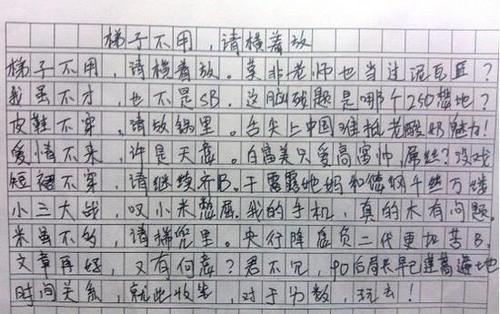 梯子不用,请横着放
梯子不用,请横着放。莫非老师也当过泥瓦匠?
我虽不才,也不是SB。这脑残题是哪个250想地?
皮鞋不穿,请放锅里。舌尖上中国难抵老酸奶魅力!
爱情不来,许是天意。白富美只爱高富帅,屌丝?没戏
短裙不穿,请继续齐B。干露露她妈和德纲千丝万缕
小三大战,叹小米憋屈。我的手机,真的木有问题
米虽不多,请揣兜里。央行降息负二代更加苦B。
文章再好,又有何意?君不见,90后局长早已遍地
时间关系,就此收笔,对于分数,玩去!